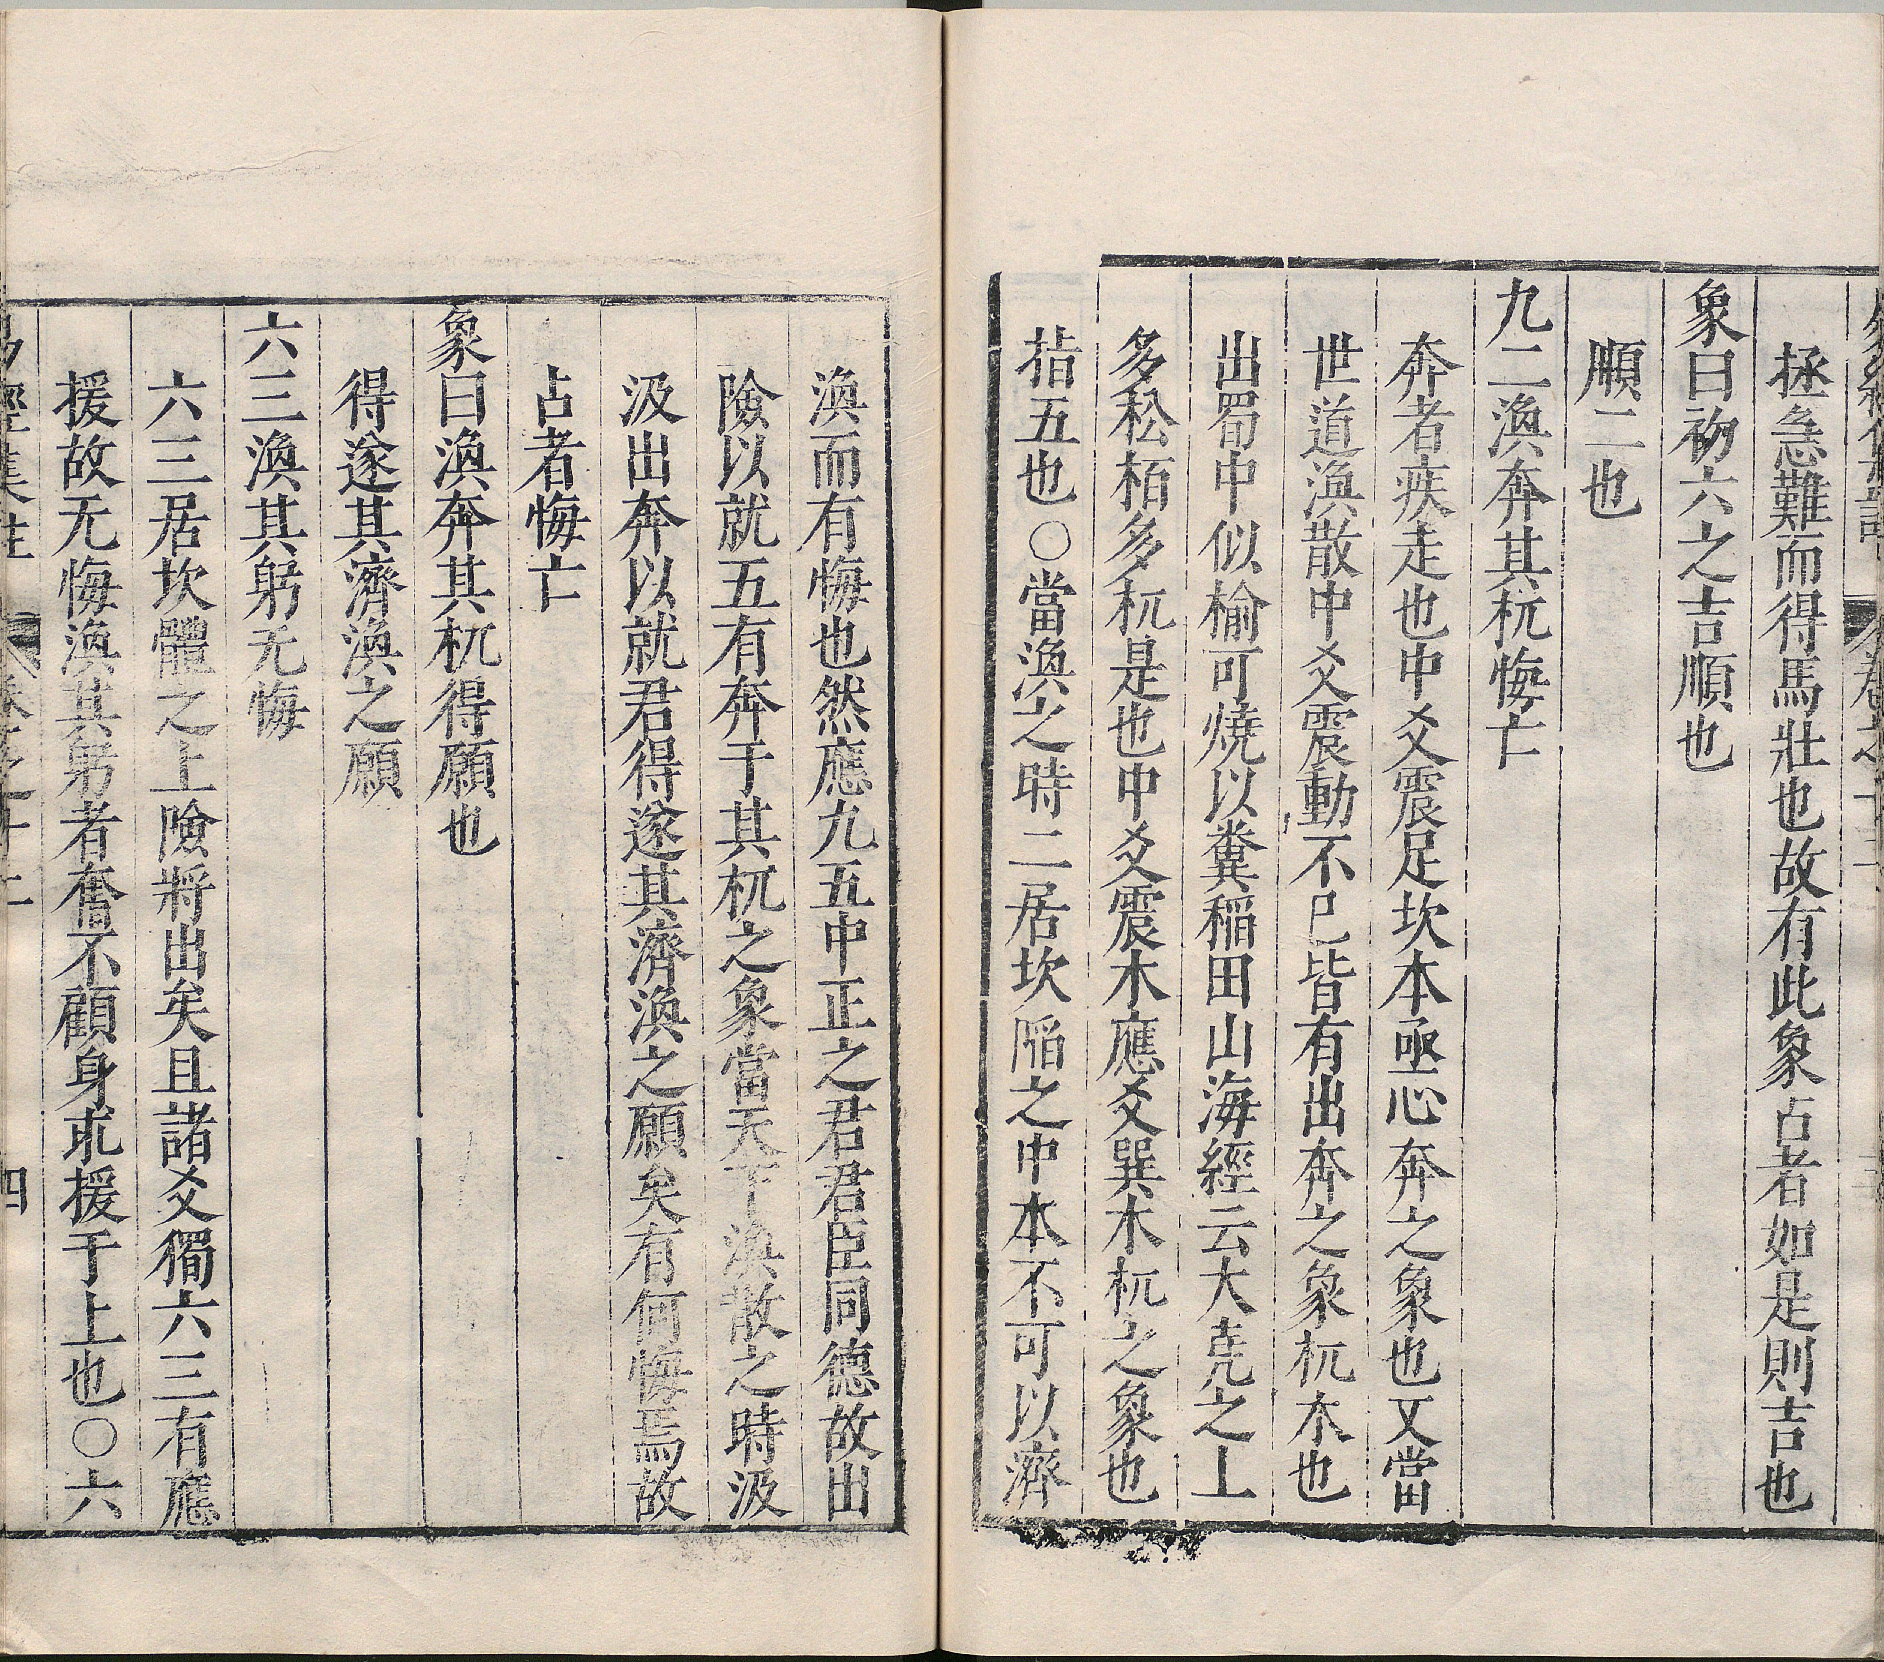 拯急難而得馬壯也故有此象占者如是則吉也
象曰初六之吉順也
順二也
九二渙奔其杌悔亡
奔者疾走也中爻震足坎本亟心奔之象也又當
世道渙散中爻震動不已皆有出奔之象杌木也
出蜀中似榆可燒以糞稻田山海經云大堯之上
多松栢多杌是也中爻震木應爻巽木杌之象也
指五也○當渙之時二居坎陷之中本不可以濟
渙而有悔也然應九五中正之君君臣同德故出
險以就五有奔于其杌之象當天下渙散之時汲
汲出奔以就君得遂其濟渙之願矣有何悔焉故
占者悔亡
象曰渙奔其杌得願也
得遂其濟渙之願
六三渙其躬无悔
六三居坎體之上險將出矣且諸爻獨六三有應
援故无悔渙其躬者奮不顧身求援于上也○六
易經集註 卷之十二 四